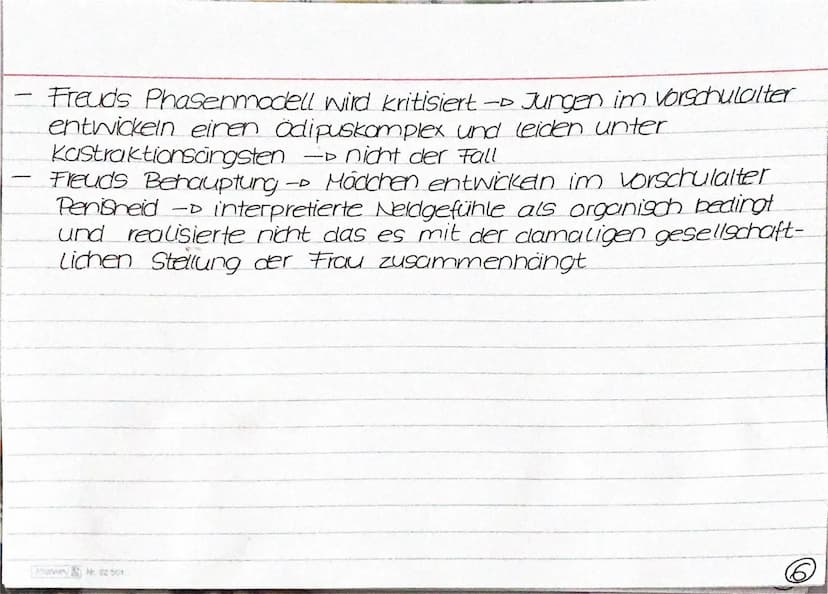 - Freuds Phasenmodell wird kritisiert → Jungen im Vorschulalter
entwickeln einen Ödipuskomplex und leiden unter
Kastraktionsängsten → nicht der Fall
- Freuds Behauptung → Mädchen entwickeln im Vorschulalter
Penisneid → interpretierte Neidgefühle als organisch bedingt
und realisierte nicht das es mit der damaligen gesellschaft-
lichen Stellung der Frau zusammenhängt
Nr. 02 501
6